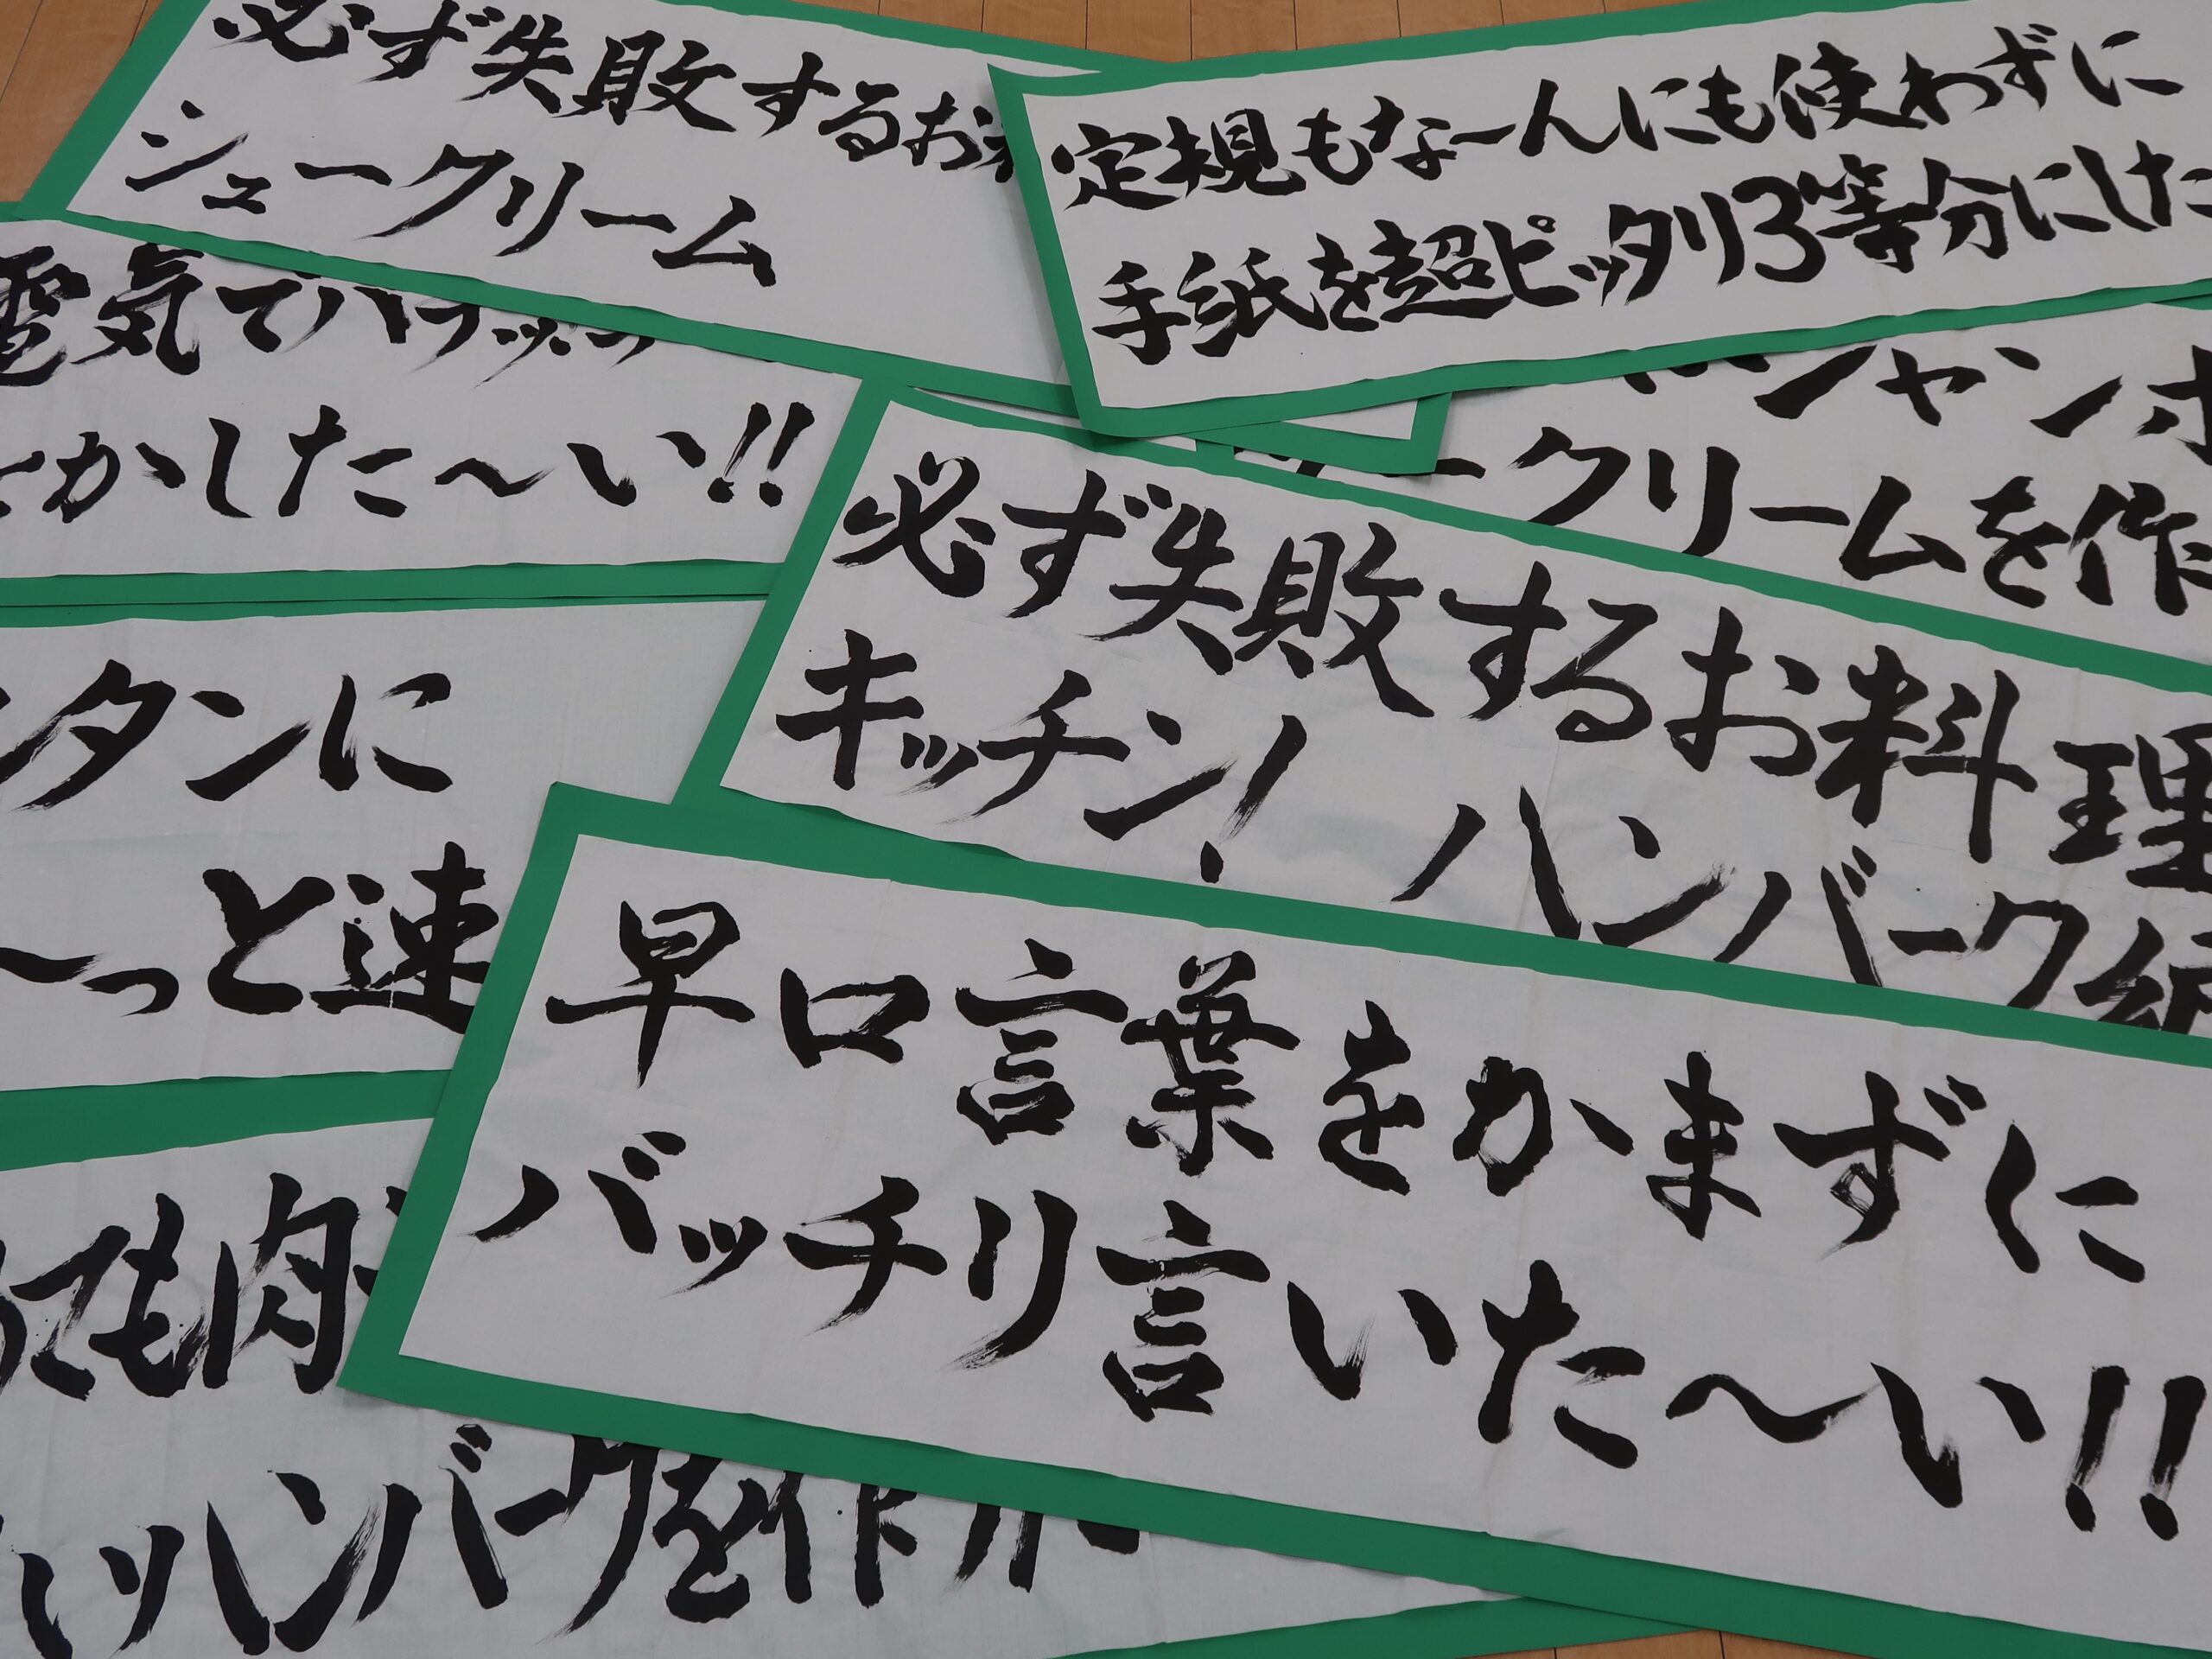 必ず失敗するお
シュークリーム
定規もなーんにも使わずに
手紙を超ピッタリ3等分にした
電気でパチッっ
かした〜い!!
シャンボ
ークリームを作
必ず失敗するお料理
キッチン! ハンバーグ編
タンに
〜っと速
早口言葉をかまずに
バッチリ言いた〜い!!
ても肉
ハンバーグを作